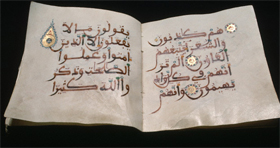 هم كذبون
والشعراء يتبعهم
الغاون ألم تر
أنهم في كل واد
يهيمون وأنهم
يقولون ما لا
يفعلون إلا الذين
ءامنوا وعملوا
الصلحت وذكر
وا الله كثيرا